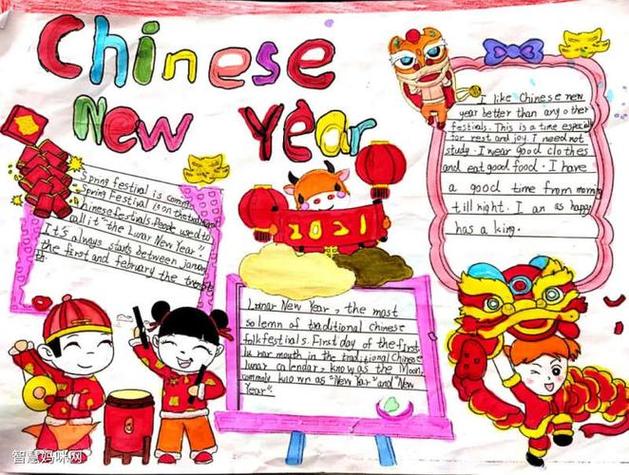 Chinese
New Year
Spring festival is coming
Spring Festival is on the traditional
Chinese festivals. People used to
call it "the Lunar New Year".
It's always starts between january
the first and february the
2021
I like Chinese new
year better than any other
festivals. This is a time especial
for rest and joy. I need not
study. I wear good clothes
and eat good food. I have
a good time from morning
till night. I an as happy
has a king.
Lunar New Year, the most
solemn of traditional chinese
folk festivals. First day of the first
lunar mouth in the traditional Chinese
lunar calendar, know as the Moon,
known as "New Year" and "New
Year".
智慧妈咪网